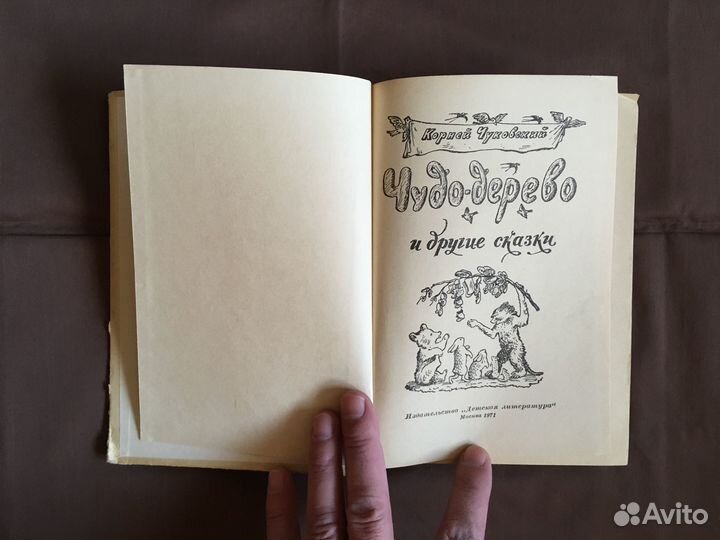 Корней Чуковский
Чудо-дерево
и другие сказки
Издательство „Детская литература“
Москва 1971
Avito